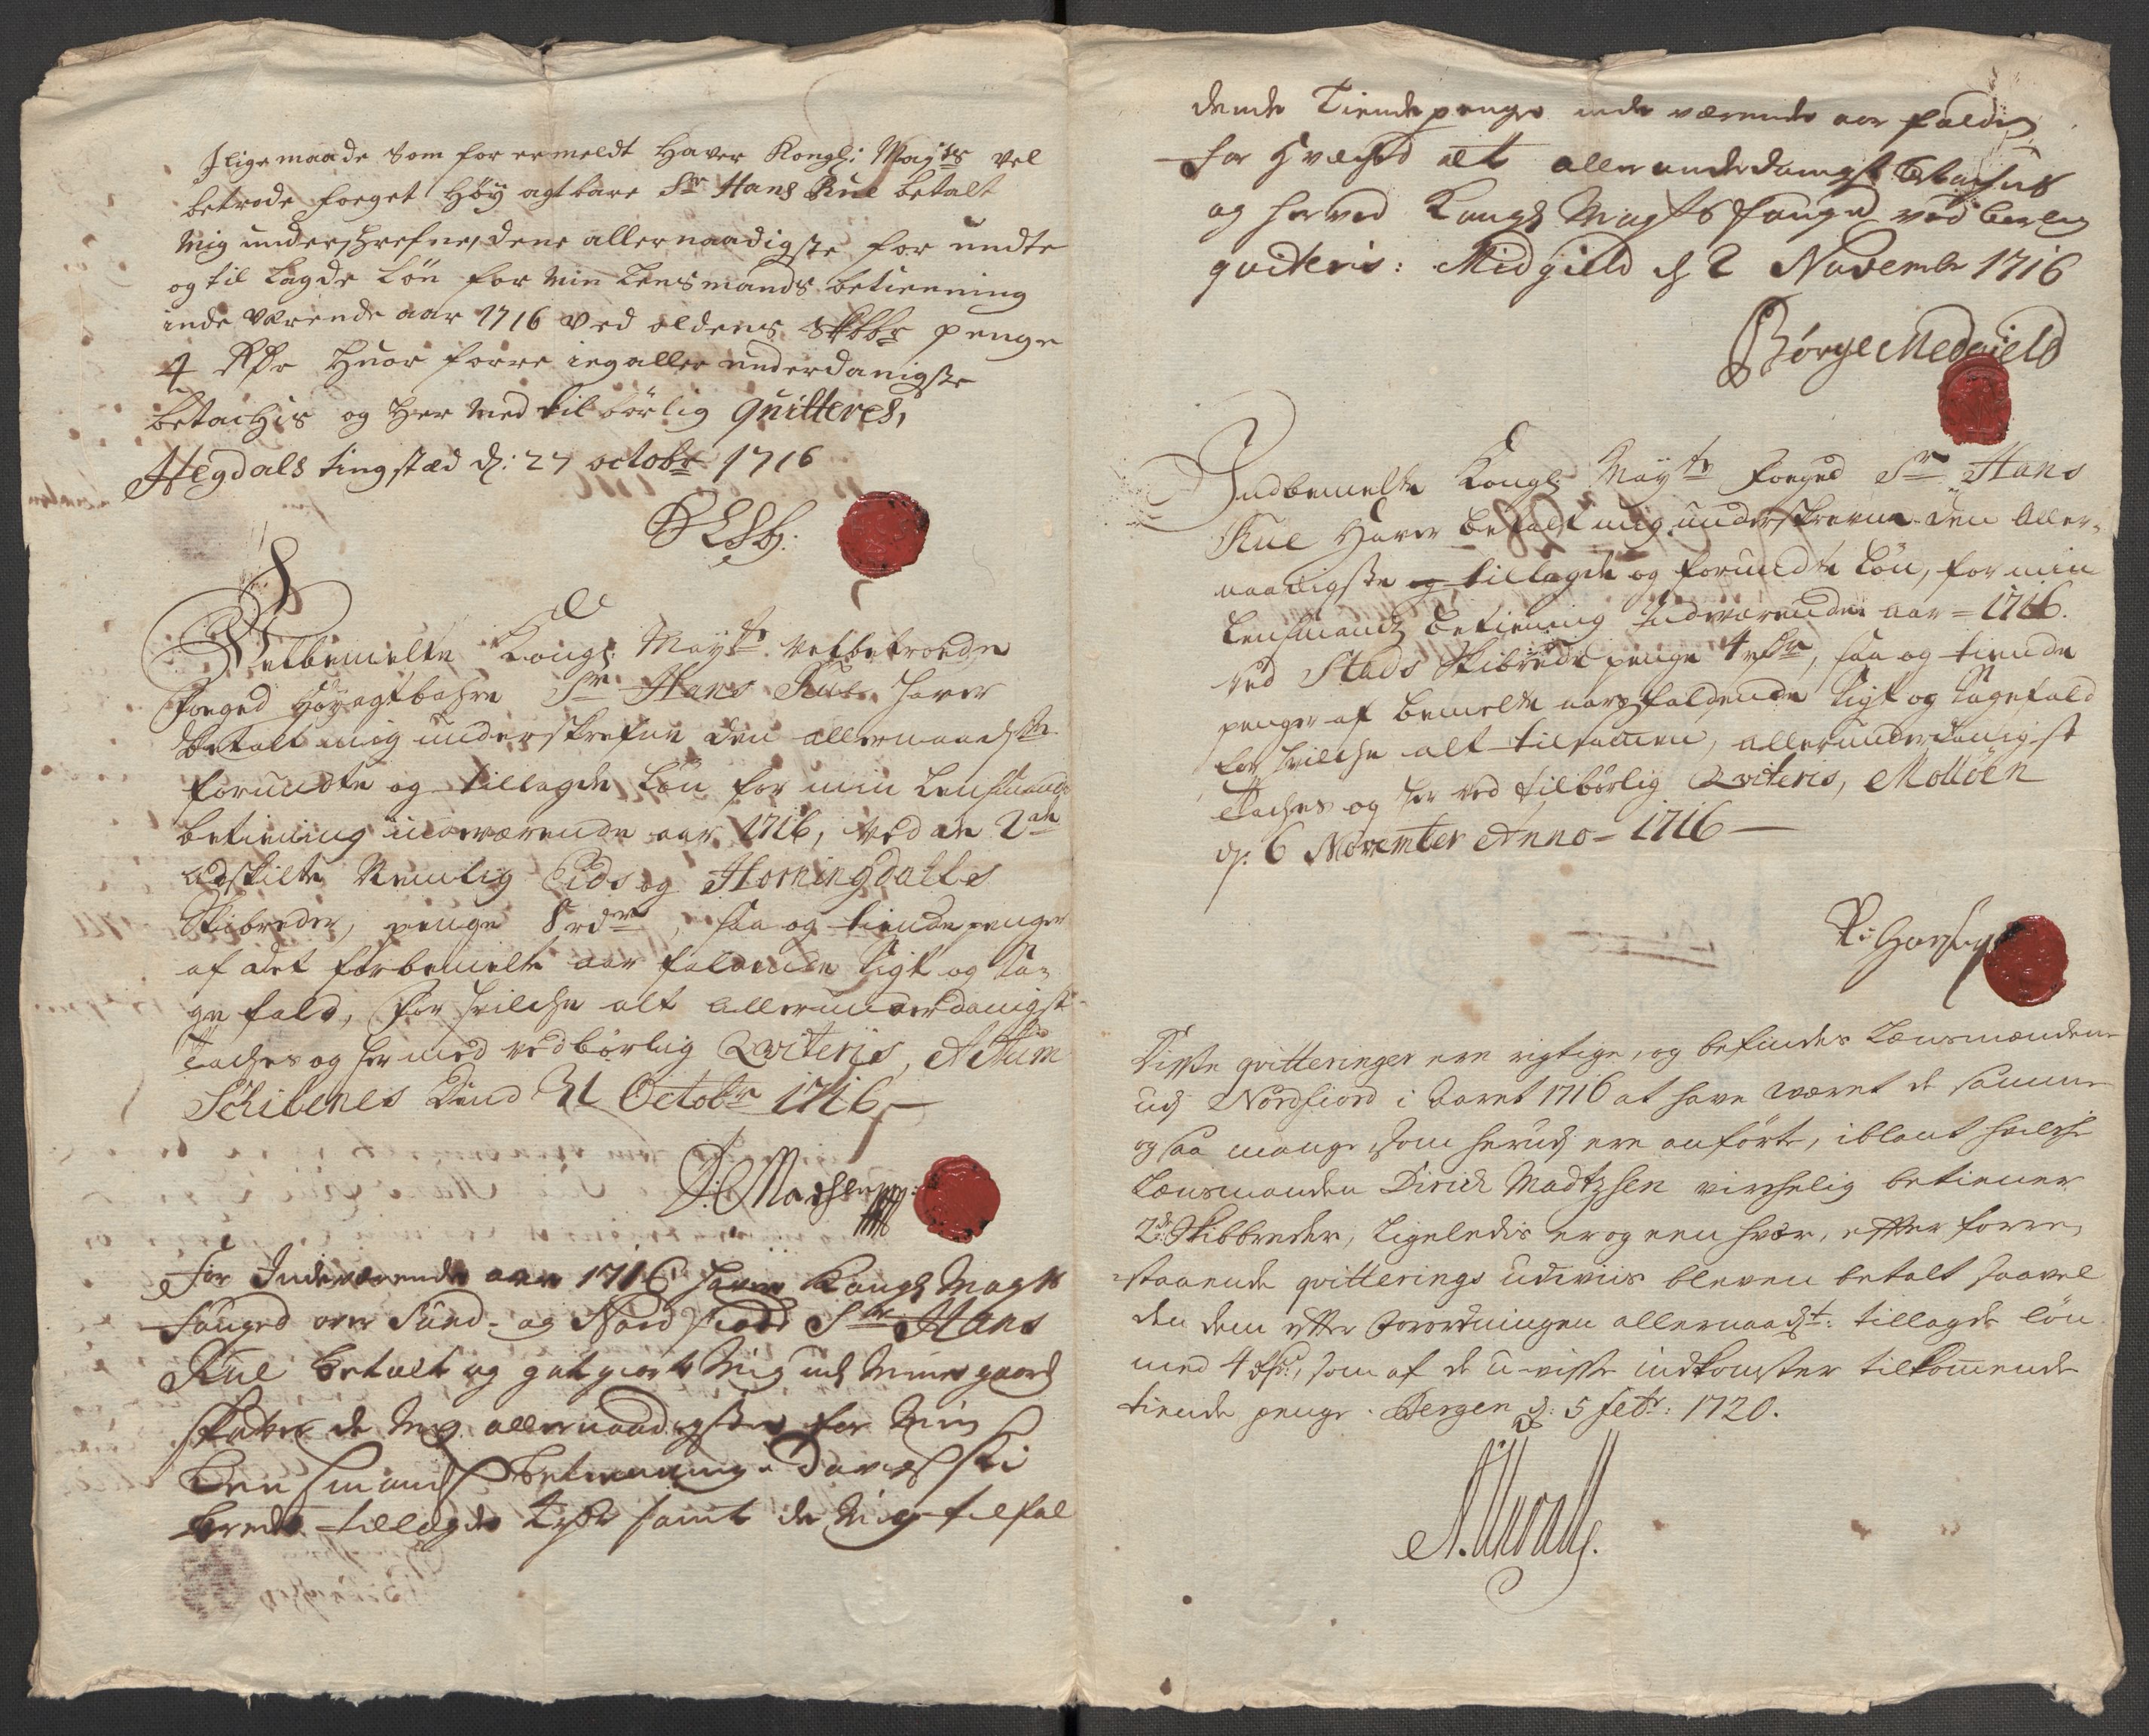 Jlige maade Som for ermeldt Haver Kongl: May:ts vel
betrode foeget Høÿ agtbare Sr Hans Rue betalt
Mig underschrefne, dene allernaadigste for undte
og til Lagde Løn for Min Lensmands betienning
inde Værende aar 1716 Ved oldens Skbbr penge
4 Rdr Huor forre ieg aller underdanigste
betachis og Her Med til børlig quitteres,
Hegdals tingstæd d: 27 octobr 1716
Velbemelte Kongl: Mayts Velbetroede
Foeged Høyagtbahre Sr Hans Rue hafver
Betalt mig underskrefne den allernaadste
forundte og tillagde Løn for min Lensmands
betiening indeværende aar 1716, Ved de 2de
adskilte Nemlig Eids og Horningdalls
Skibreder, penge 8 rdr, saa og tiendepenger
af det forbemelte aar faldende Sigt og Sa-
ge fald, for hvilche alt allerunderdanigst
Taches og hermed vedbørlig Qviteris, Actum
Schibenes Dend 31 Octobr 1716
D: Madsen
For Indeværende aar 1716 hafver Kongl Mayts
Fouged over Sund- og Nordfiord Sr Hans
Rue betalt og godtgiort Mig udj Mines gaard
skatter de Mig allernaadigste for Min
Lensmands betienning Davigs ski
brede tillagde 4 rdr samt de Mig tilfal
dende Tiendepenge inde værende aar falden
for hvilched alt allerunderdanigst betachus
og herved Kongl Mayts fouged ved børlig
qviteris: Midgield d 2 Novembr 1716
Børge Medgield
Indbemelte Kongl: Mayts Foeged Sr Hans
Rue Haver betalt mig underskrevne den Aller-
naadigste og tillagde og forundte Løn, for min
Lensmands Betiening Indeværende aar = 1716.
Ved Stads Skibrede penge 4 rdr, saa og tiende
penger af bemelte aars faldende Sigt og Sagefald
for hvilche alt tilsamen, allerunderdanigst
Taches og her ved tilbørlig Qviteris, Molløen
d: 6 November Anno - 1716
Disse qvitteringer ere rigtige, og befindes Lænsmændene
udj Nordfiord i Aaret 1716 at have været de samme
og saa mange, som herudj ere anførte, iblant hvilche
Lænsmanden Dirich Madtzsen virchelig betiener
2de Skibbreder, ligeledis er og een hver, efter forre-
staaende qvitterings udviis bleven betalt saavel
den dem efter Forordningen allernaadst: tillagde løn
med 4 rdr, som af de u-visse indkomster tilkommende
tiende penge. Bergen d: 5 febr: 1720.